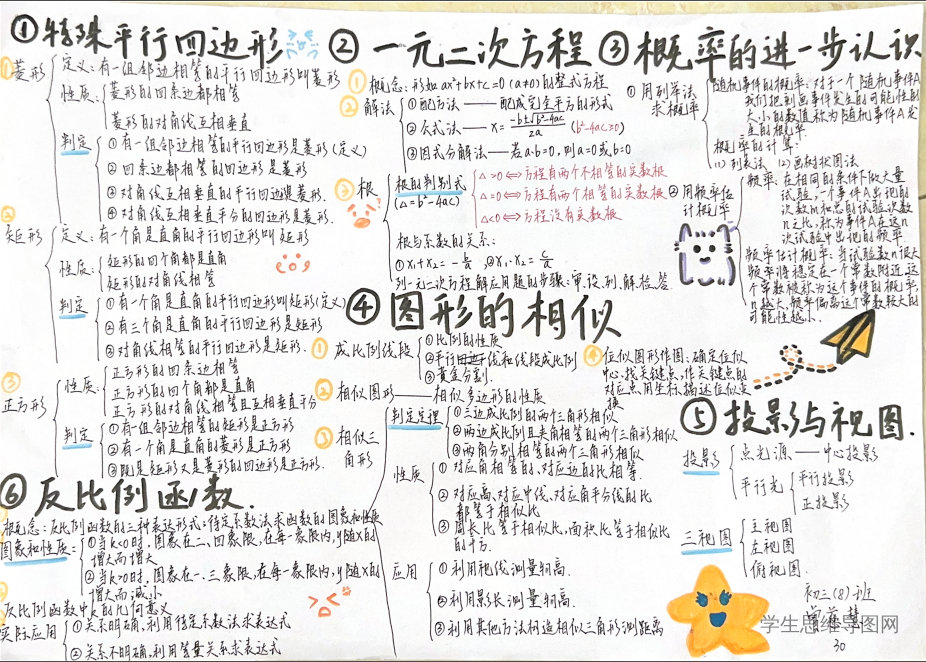 ①特殊平行四边形
①菱形
定义：有一组邻边相等的平行四边形叫菱形
性质：
菱形的四条边都相等
菱形的对角线互相垂直
判定
①有一组邻边相等的平行四边形是菱形(定义)
②四条边都相等的四边形是菱形
③对角线互相垂直的平行四边形是菱形.
④对角线互相垂直平分的四边形是菱形.
②
矩形
定义：有一个角是直角的平行四边形叫矩形
性质：
矩形的四个角都是直角
矩形的对角线相等
判定
①有一个角是直角的平行四边形叫矩形(定义)
②有三个角是直角的四边形是矩形
③对角线相等的平行四边形是矩形.
③
正方形
性质：
正方形的四条边相等
正方形的四个角都是直角
正方形的对角线相等且互相垂直平分
判定
①有一组邻边相等的矩形是正方形
②有一个角是直角的菱形是正方形
③既是矩形又是菱形的四边形是正方形.
②一元二次方程
①概念：形如ax²+bx+c=0(a≠0)的整式方程
②解法
①配方法——配成完全平方的形式
②公式法——x=(-b±√b²-4ac)/2a (b²-4ac≥0)
③因式分解法——若a·b=0,则a=0或b=0
③根
根的判别式
(△=b²-4ac)
△>0⇔方程有两个不相等的实数根
△=0⇔方程有两个相等的实数根
△<0⇔方程没有实数根
根与系数的关系：
①x₁+x₂=-b/a ,②x₁·x₂=c/a
列一元二次方程解应用题的步骤：审,设,列,解,检,答
③概率的进一步认识
①用列举法
求概率
随机事件的概率：对于一个随机事件A
我们把刻画事件发生的可能性的
大小的数值,称为随机事件A发
生的概率
概率的计算：
(1)列表法 (2)画树状图法
②用频率估
计概率
频率：在相同的条件下做大量
试验,一个事件A出现的
次数m和总的试验次数
n之比,称为事件A在这n
次试验中出现的频率
频率估计概率：当试验数n很大
频率将稳定在一个常数附近,这
个常数被称为这个事件的概率,
n越大,频率偏离这个常数较大的
可能性越小.
④图形的相似
①成比例线段
①比例的性质
②平行线和线段成比例
③黄金分割.
②相似图形——相似多边形的性质
③相似三
角形
判定定理
①三边成比例的两个三角形相似
②两边成比例且夹角相等的两个三角形相似
③两角分别相等的两个三角形相似
性质
①对应角相等的,对应边的比相等.
②对应高,对应中线,对应角平分线的比
都等于相似比
③周长比等于相似比,面积比等于相似比
的平方.
应用
①利用视线测量物高.
②利用影长测量物高.
③利用其他方法构造相似三角形测距离
④位似图形作图：确定位似
中心,找关键点,作关键点的
对应点用坐标描述位似变
换
⑤投影与视图.
投影
点光源——中心投影
平行光
平行投影
正投影
三视图
主视图
左视图
俯视图.
⑥反比例函数.
概念：反比例函数的三种表达形式：待定系数法求函数的图象和性质
图象和性质=
①当k<0时,图象在二、四象限,在每一象限内,y随x的
增大而增大
②当k>0时,图象在一、三象限,在每一象限内,y随x的
增大而减小
反比例函数中k的几何意义
实际应用
①关系明确,利用待定系数法求表达式
②关系不明确,利用等量关系求表达式
初三(8)班
30
学生思维导图网